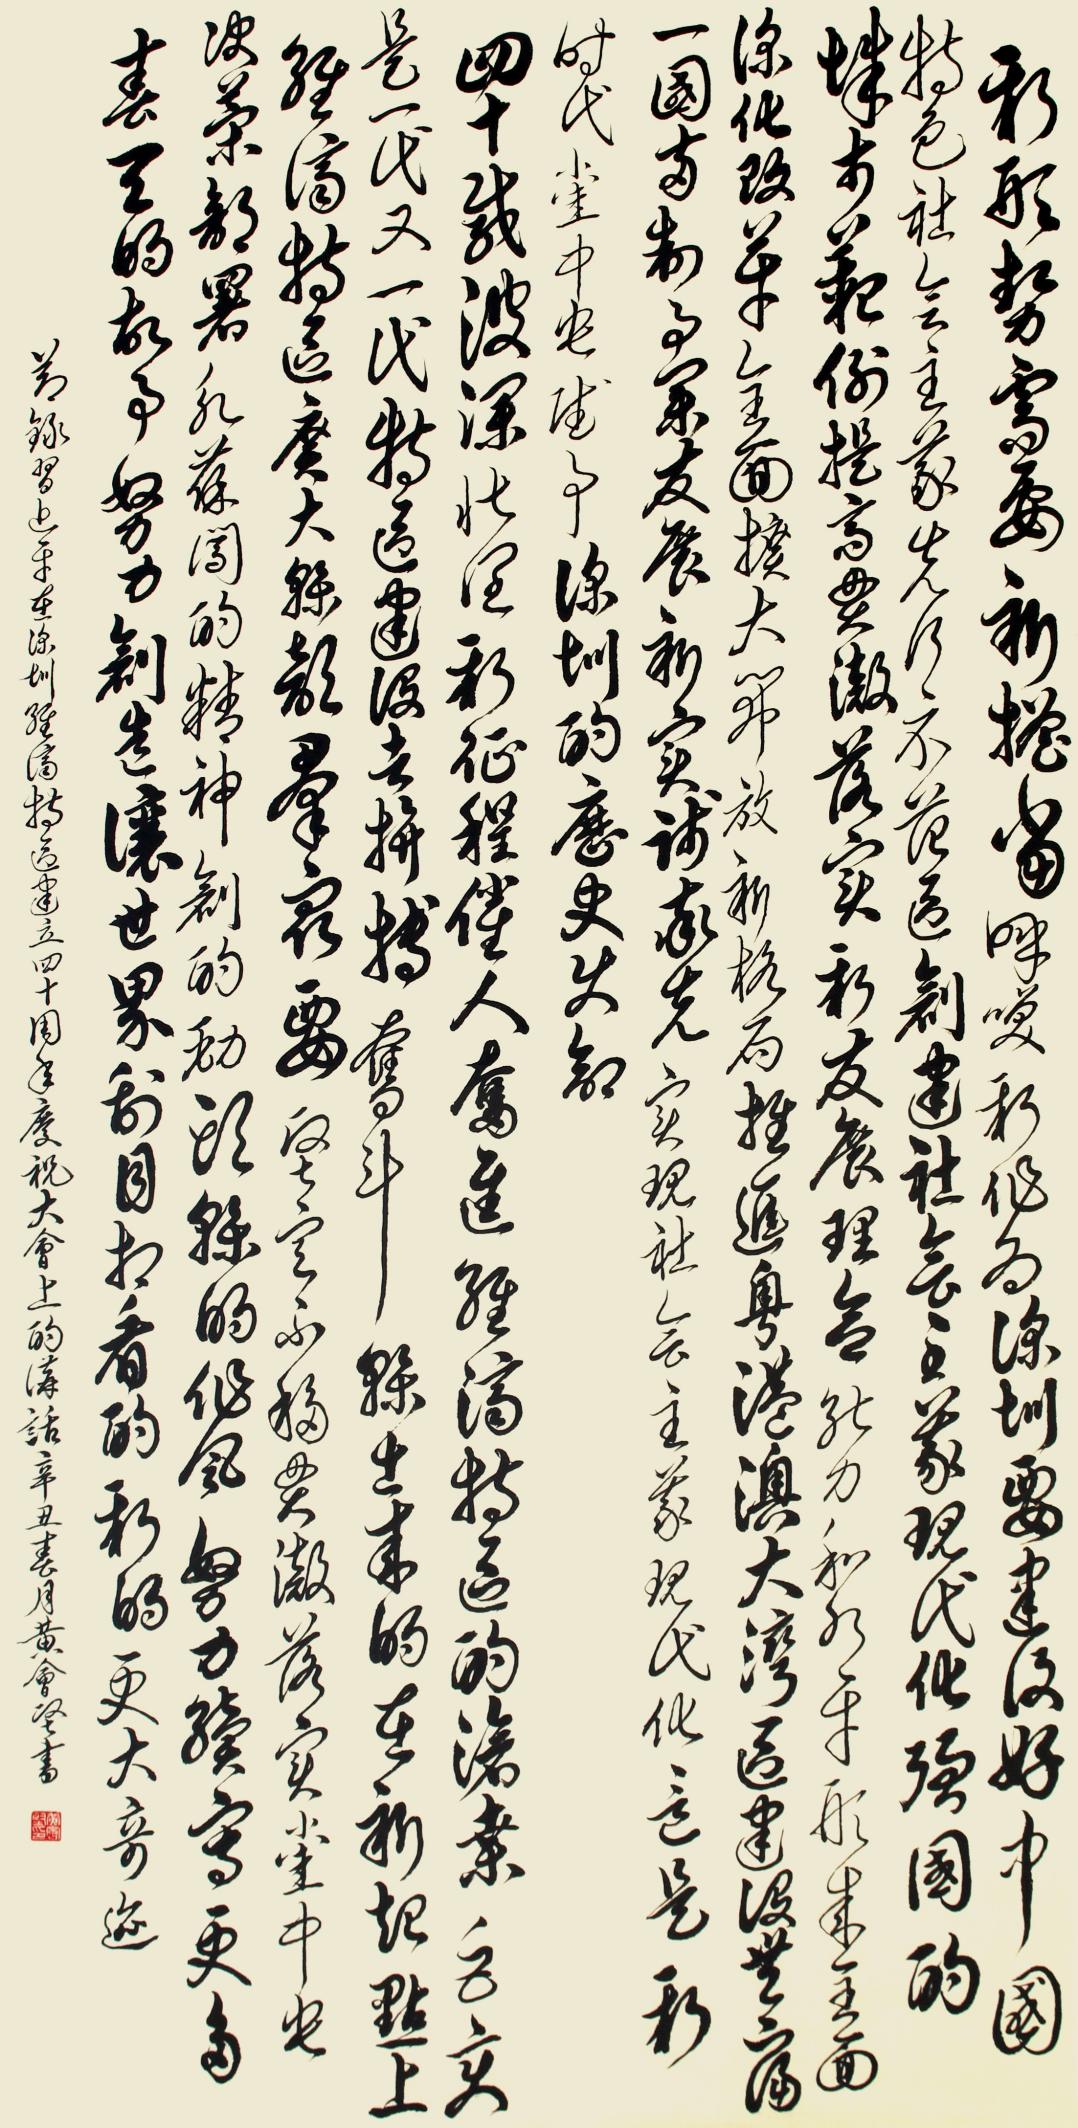 新形势需要新担当呼唤新作为深圳要建设好中國
特色社会主义先行示范区創建社会主义现代化强國的
城市範例提高贯徹落实新发展理念能力和水平形成全面
深化改革全面擴大开放新格局推進粤港澳大湾区建设豊富
一國两制事業发展新实践率先实现社会主义现代化这是新
时代党中央赋予深圳的歷史使命
四十载波澜壮阔新征程催人奮進经濟特区的沧桑巨变
是一代又一代特区建设者拼搏奮斗幹出来的在新起點上
经濟特区廣大幹部羣眾要坚定不移贯徹落实党中央
决策部署永葆闖的精神創的劲头幹的作风努力續寫更多
春天的故事努力創造讓世界刮目相看的新的更大奇迹
节錄習近平在深圳经濟特区建立四十周年慶祝大會上的講話辛丑春月黄會坚書